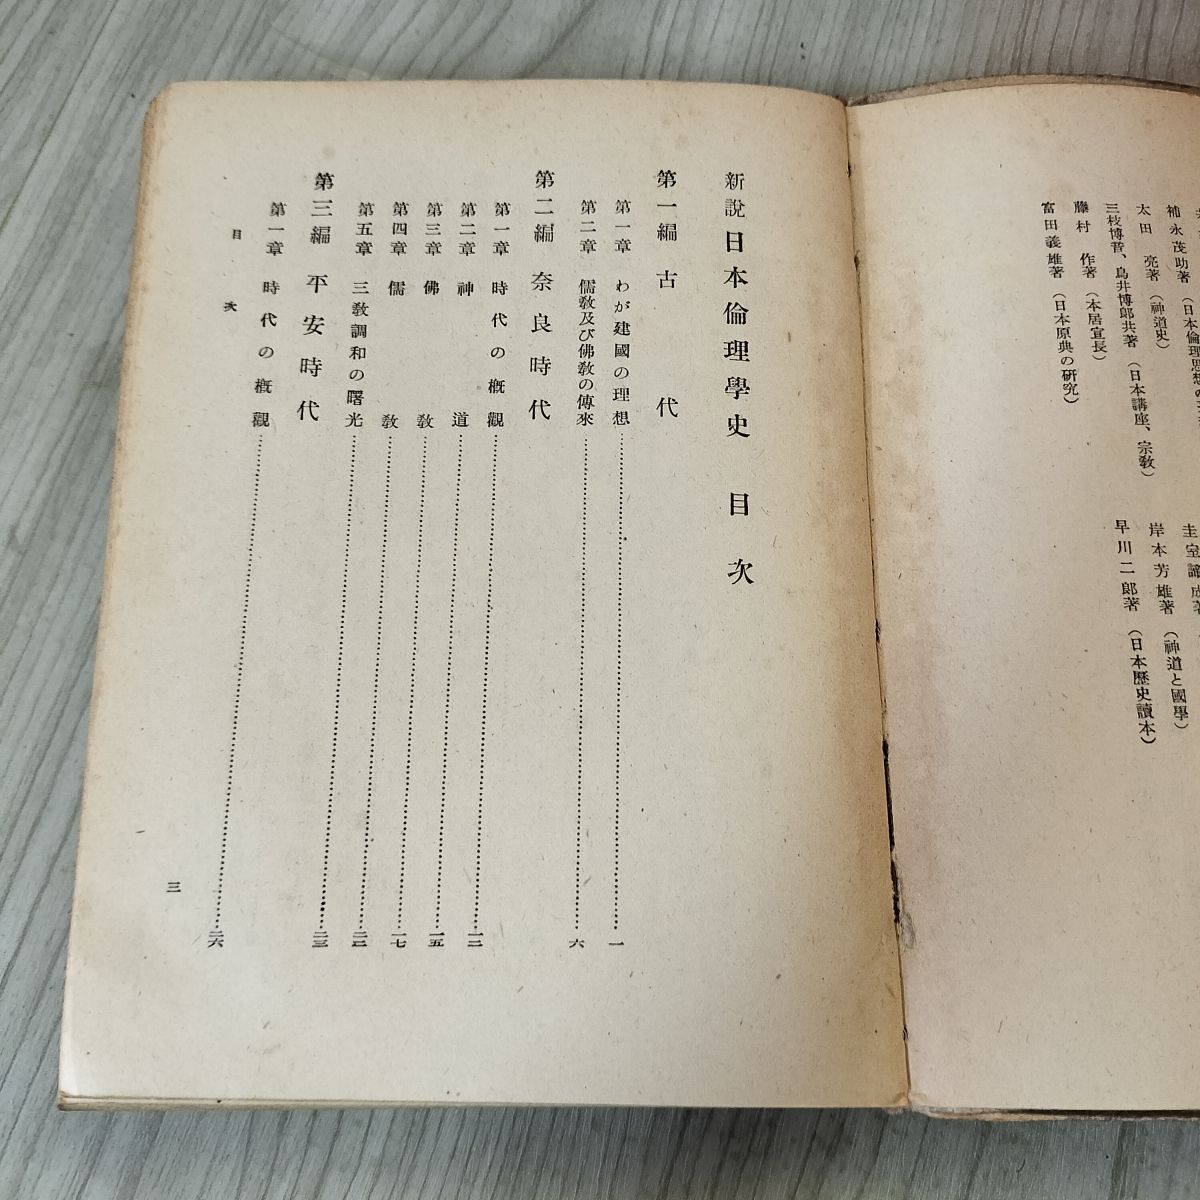 補永茂助著（日本倫理思想の
太田　亮著（神道史）
三枝博音、鳥井博郎共著（日本講座、宗敎）
藤村　作著（本居宣長）
富田義雄著（日本原典の研究）
圭室諦成著
岸本芳雄著（神道と國學）
早川二郎著（日本歷史讀本）
新說日本倫理學史　目次
第一編　古代
第一章　わが建國の理想……一
第二章　儒敎及び佛敎の傳來……六
第二編　奈良時代
第一章　時代の槪觀……一二
第二章　神道……一五
第三章　佛敎……一七
第四章　儒敎……二二
第五章　三敎調和の曙光……二三
第三編　平安時代
第一章　時代の槪觀……二六
目次
三